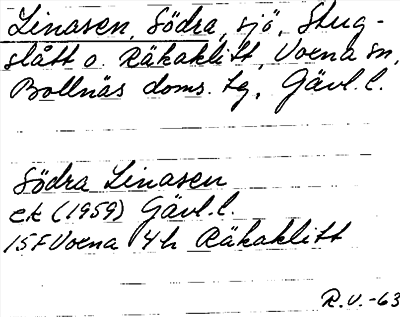 Linasen, Södra, sjö, Stug-
slått o. Räkaklitt, Voxna sn,
Bollnäs doms. tg, Gävl. l.
Södra Linasen
ek (1959) Gävl. l.
15F Voxna 4h Räkaklitt
R.V.-63